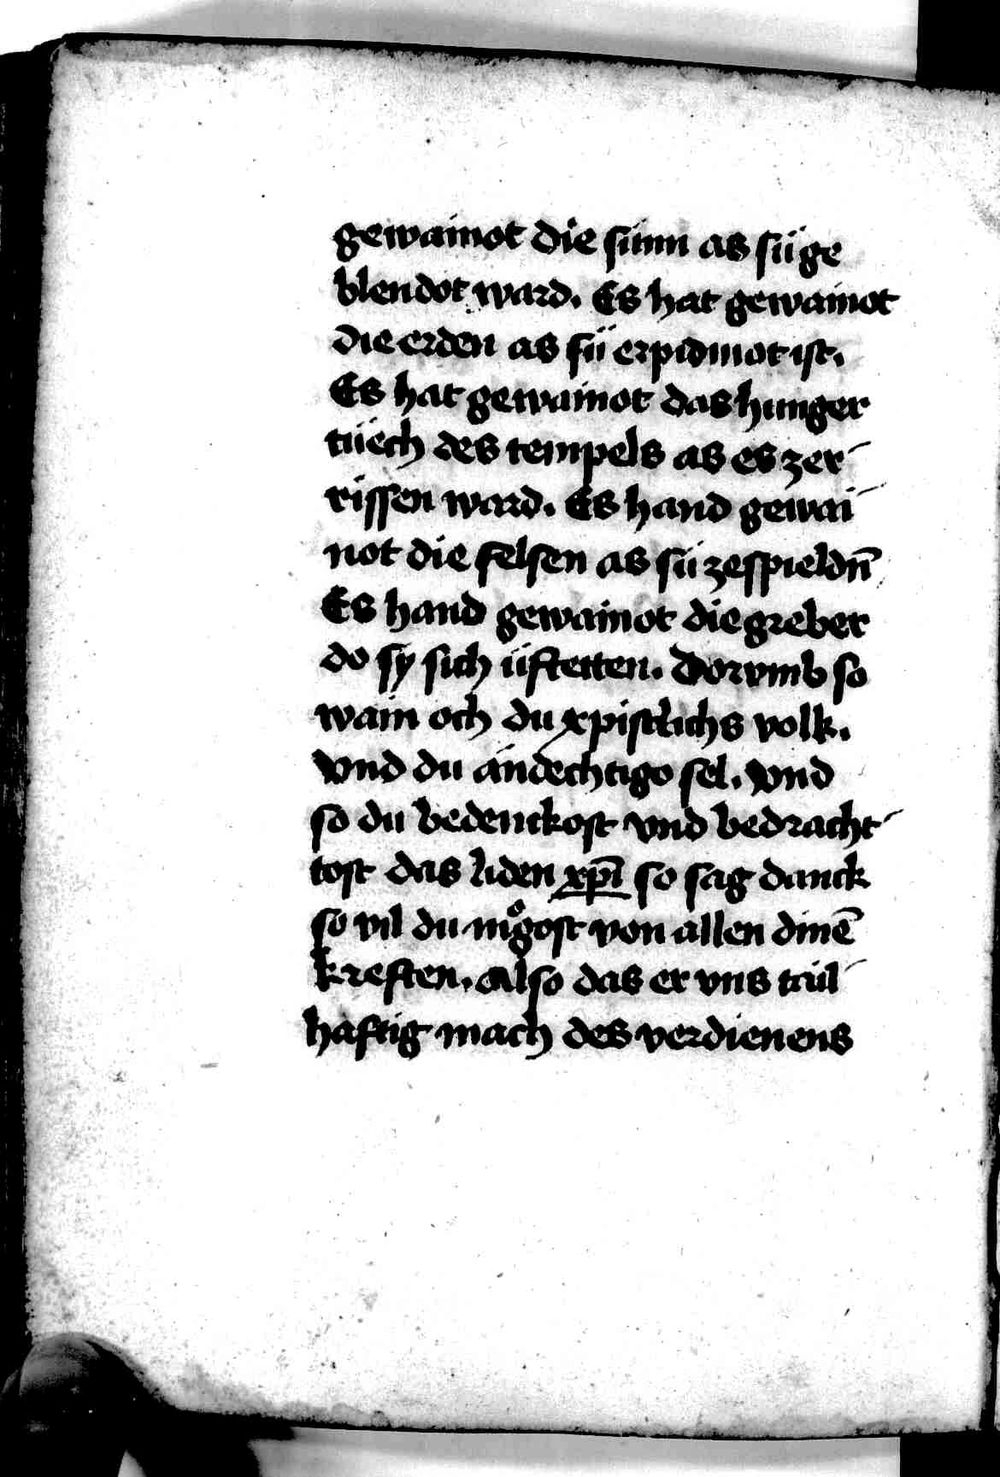 gewainot die sunn as sü ge
blendot ward. Es hat gewainot
die erden as sü erpidmot ist.
Es hat gewainot das hunger
tuech des tempels as es zer
rissen ward. Es hand gewai
not die felsen as sü zespieldn̄
Es hand gewainot die greber
do sy sich ufftetten. Dorvmb so
wain och du xpistlichs volk.
Vnd du ándechtigo sel. Vnd
so du bedenckost vnd bedracht
tost das liden xp̄i so sag danck
so vil du mo̊gost von allen dinē
kreften. Also das er vns tail
haftig mach des verdienens